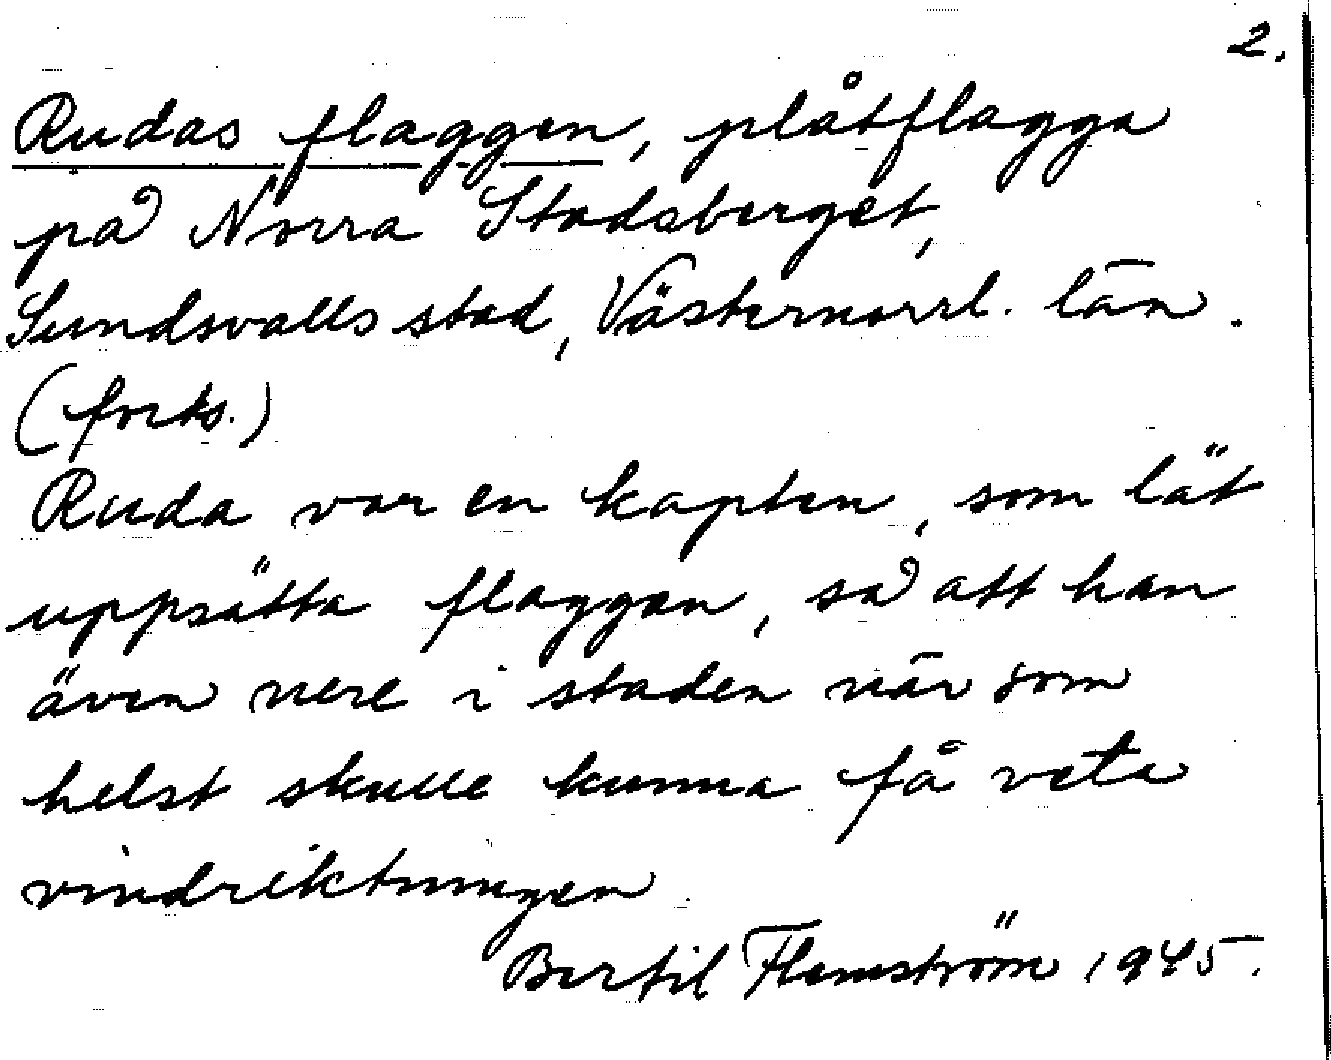 2.
Rudas flaggen, plåtflagga
på Norra Stadsberget,
Sundsvalls stad, Västernorrl. län.
(forts.)
Ruda var en kapten, som lät
uppsätta flaggan, så att han
även nere i staden när som
helst skulle kunna få veta
vindriktningen.
Bertil Flemström 1945.